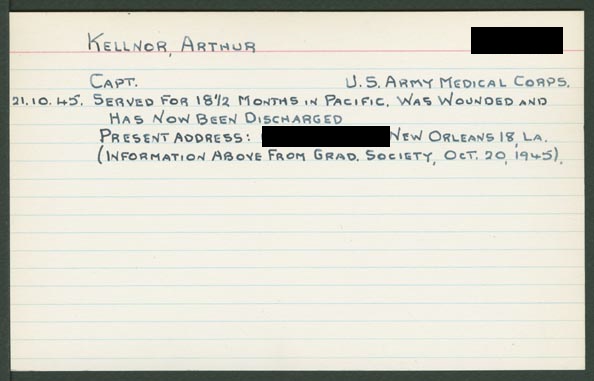 KELLNOR, ARTHUR
CAPT. U.S. ARMY MEDICAL CORPS.
21.10.45. SERVED FOR 18 1/2 MONTHS IN PACIFIC. WAS WOUNDED AND
HAS NOW BEEN DISCHARGED
PRESENT ADDRESS: NEW ORLEANS 18, LA.
(INFORMATION ABOVE FROM GRAD. SOCIETY, OCT. 20, 1945).